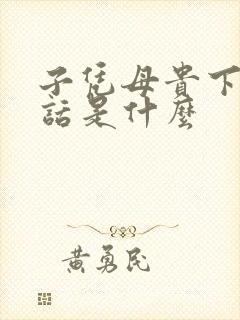 子凭母貴下
話是什麼
黃勇民